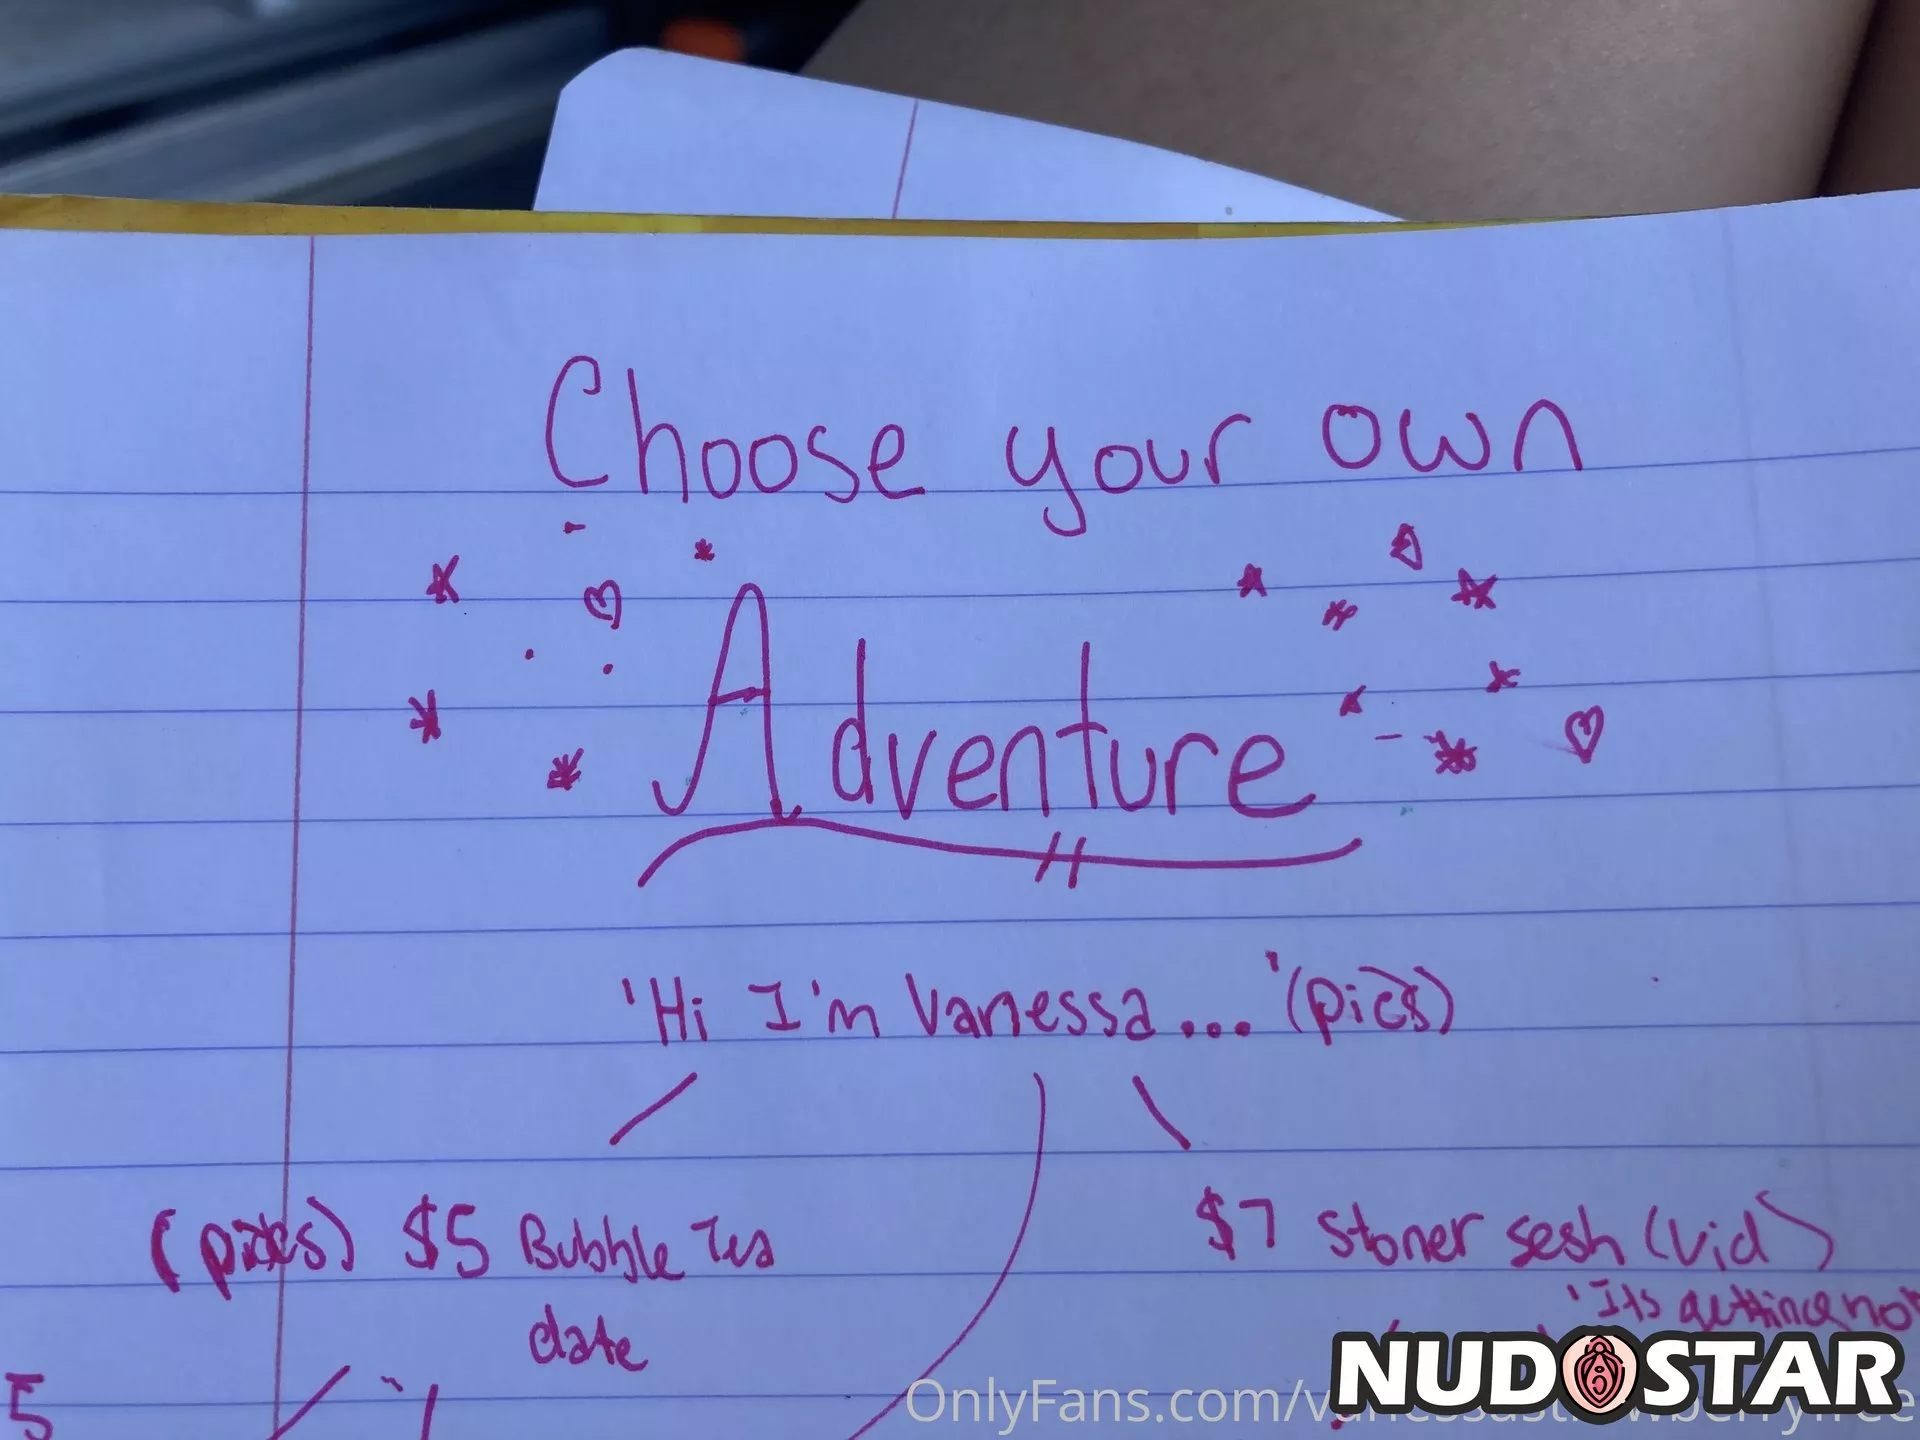 Choose your own
Adventure
'Hi I'm Vanessa...' (pics)
(pics) $5 Bubble Tea
date
$7 Stoner sesh (vid)
'Its getting hot
5
NUDOSTAR
OnlyFans.com/